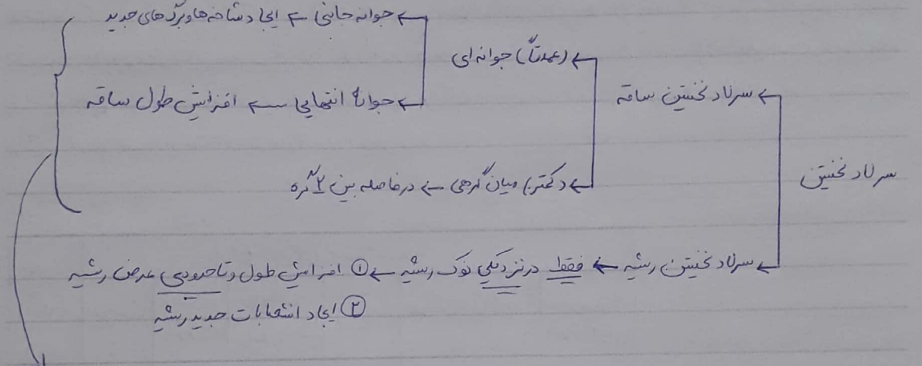 جوانه جانبی ← ایجاد شاخه‌ها و برگ‌های جدید
(عمدتاً) جوانه‌ای
جوانهٔ انتهایی ← افزایش طول ساقه
سرلاد نخستین ساقه
(کمتر) میان‌گرهی ← در فاصله بین ۲ گره
سرلاد نخستین
سرلاد نخستین ریشه ← فقط در نزدیکی نوک ریشه ← ① افزایش طول و تا حدودی عرض ریشه
② ایجاد انشعابات جدید ریشه